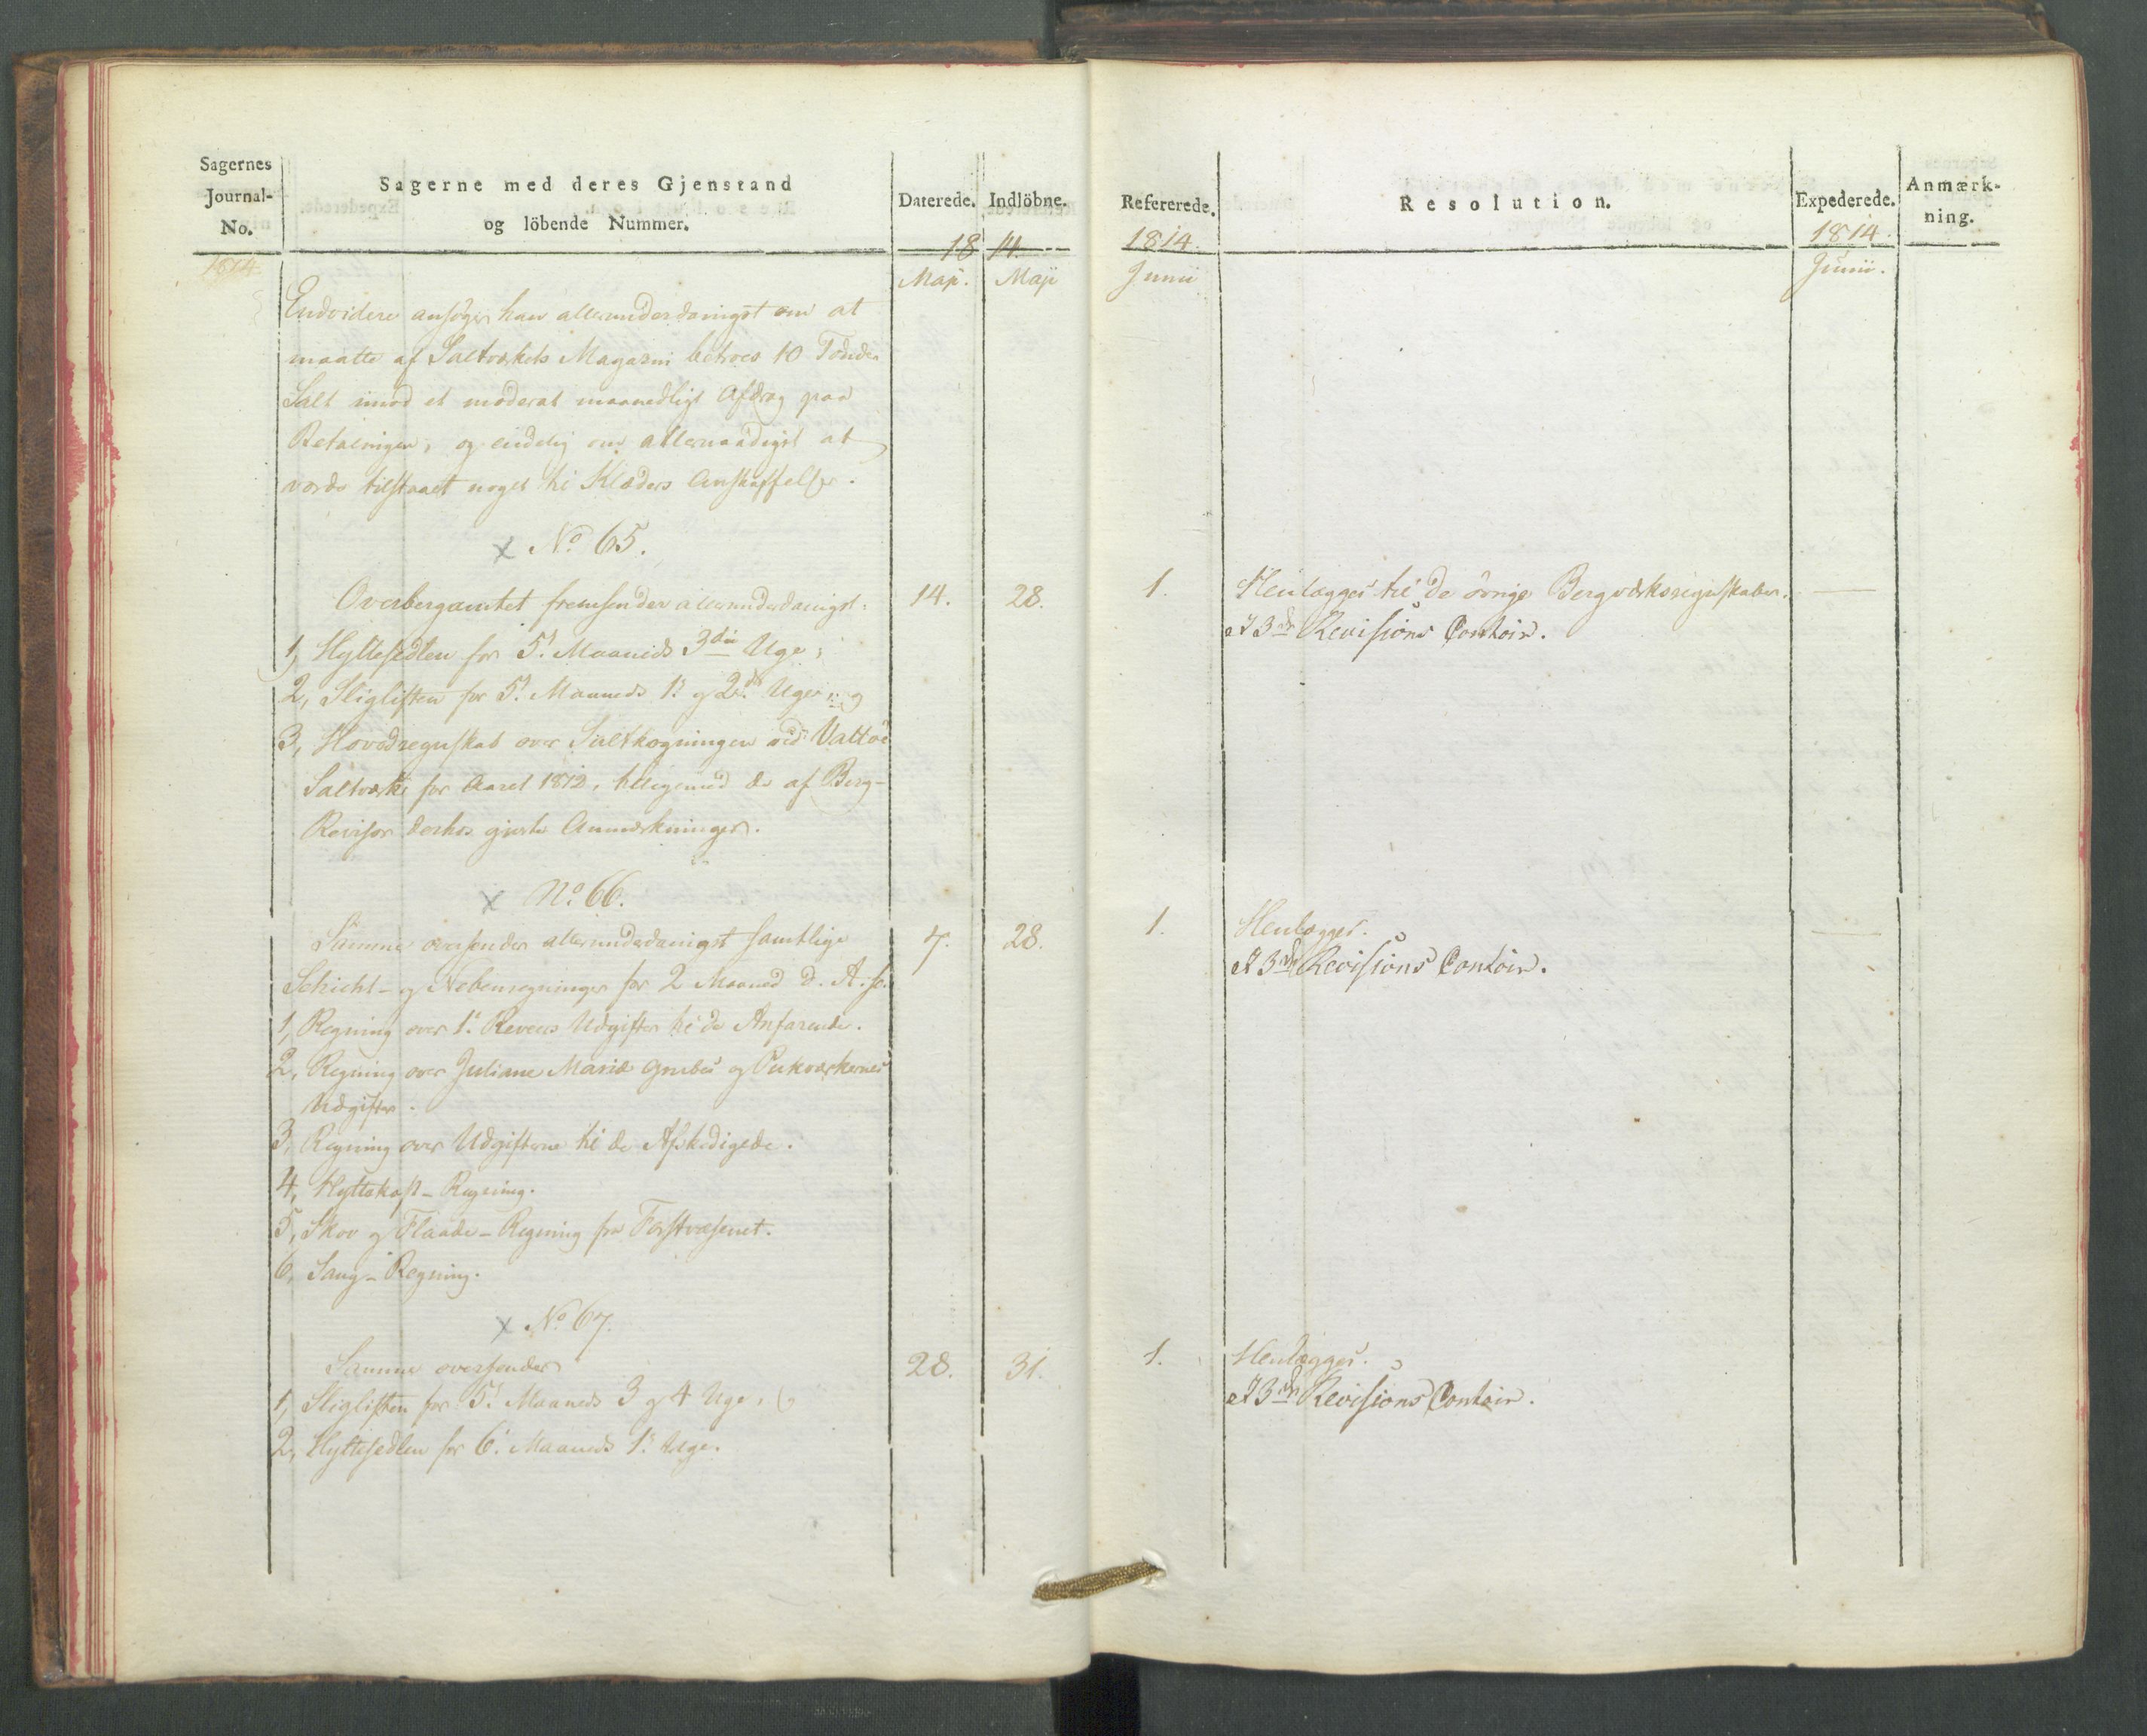 Sagernes
Journal-
No.
Sagerne med deres Gjenstand
og löbende Nummer.
Daterede.
Indlöbne.
Refererede.
Resolution.
Expederede.
Anmærk-
ning.
1814.
18 14.
1814.
1814.
Maji.
Maji
Junii
Junii.
Endvidere ansøger han allerunderdanigst om at
maatte af Saltværkets Magazin betroes 10 Tønder
Salt imod et moderat maanedligt Afdrag paa
Betalingen, og endelig om allernaadigst at
vorde tilstaaet noget til Klæders Anskaffelse.
x No. 65.
Overbergamtet fremsender allerunderdanigst:
14.
28.
1.
Henlægges til de övrige Bergværksregnskaber.
1, Hyttesedlen for 5t. Maaneds 3die Uge;
ad 3die Revisions Contoir.
2, Sliglisten for 5t. Maaneds 1s. og 2den Uger; og
3, Hovedregnskab over Saltkogningen ved Valløe
Saltværk for Aaret 1812, tilligemed de af Berg-
Revisor derhos gjorte Anmærkninger.
x No. 66.
Samme oversender allerunderdanigst samtlige
7.
28.
1.
Henlægges.
Schicht- og Nebenregninger for 2 Maaned d. A. so.
ad 3die Revisions Contoir.
1, Regning over 1s. Reveers Udgifter til de Anfarende.
2, Regning over Juliane Mariæ Grubes og Pukværkernes
Udgifter.
3, Regning over Udgifterne til de Afskedigede.
4, Hyttekost-Regning.
5, Skov og Flaade-Regning fra Forstvæsenet.
6, Saug-Regning.
x No. 67.
Samme oversender
28.
31.
1.
Henlægges.
1, Sliglisten for 5t. Maaneds 3 og 4 Uge, og
ad 3die Revisions Contoir.
2, Hyttesedlen for 6t. Maaneds 1s. Uge.